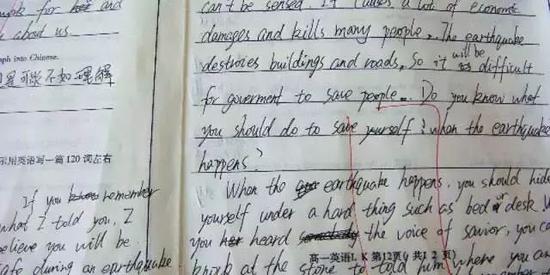 for and
about us.
ph into Chinese.
可能不如理解
示用英语写一篇 120 词左右
If you remember
what I told you, I
believe you will be
safe during an earthquake
can't be sensed. It causes a lot of economic
damages and kills many people. The earthquake
destroies buildings and roads. So it will be difficult
for goverment to save people. Do you know what
you should do to save yourself when the earthquake
happens?
When the earthquake happens, you should hide
yourself under a hard thing such as bed or desk.
you heard the voice of savior, you can
at the stone to told him where you are
高一英语L K 第12页(共12页)